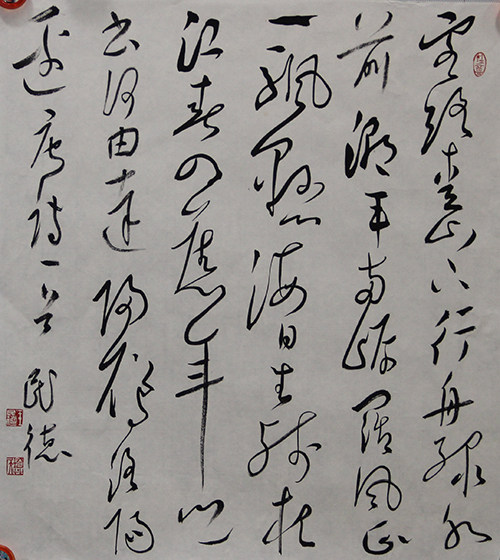 客路青山下行舟绿水
前潮平两岸阔风正
一帆悬海日生残夜
江春入旧年乡
书何由达归雁洛阳
边唐诗一首
民德